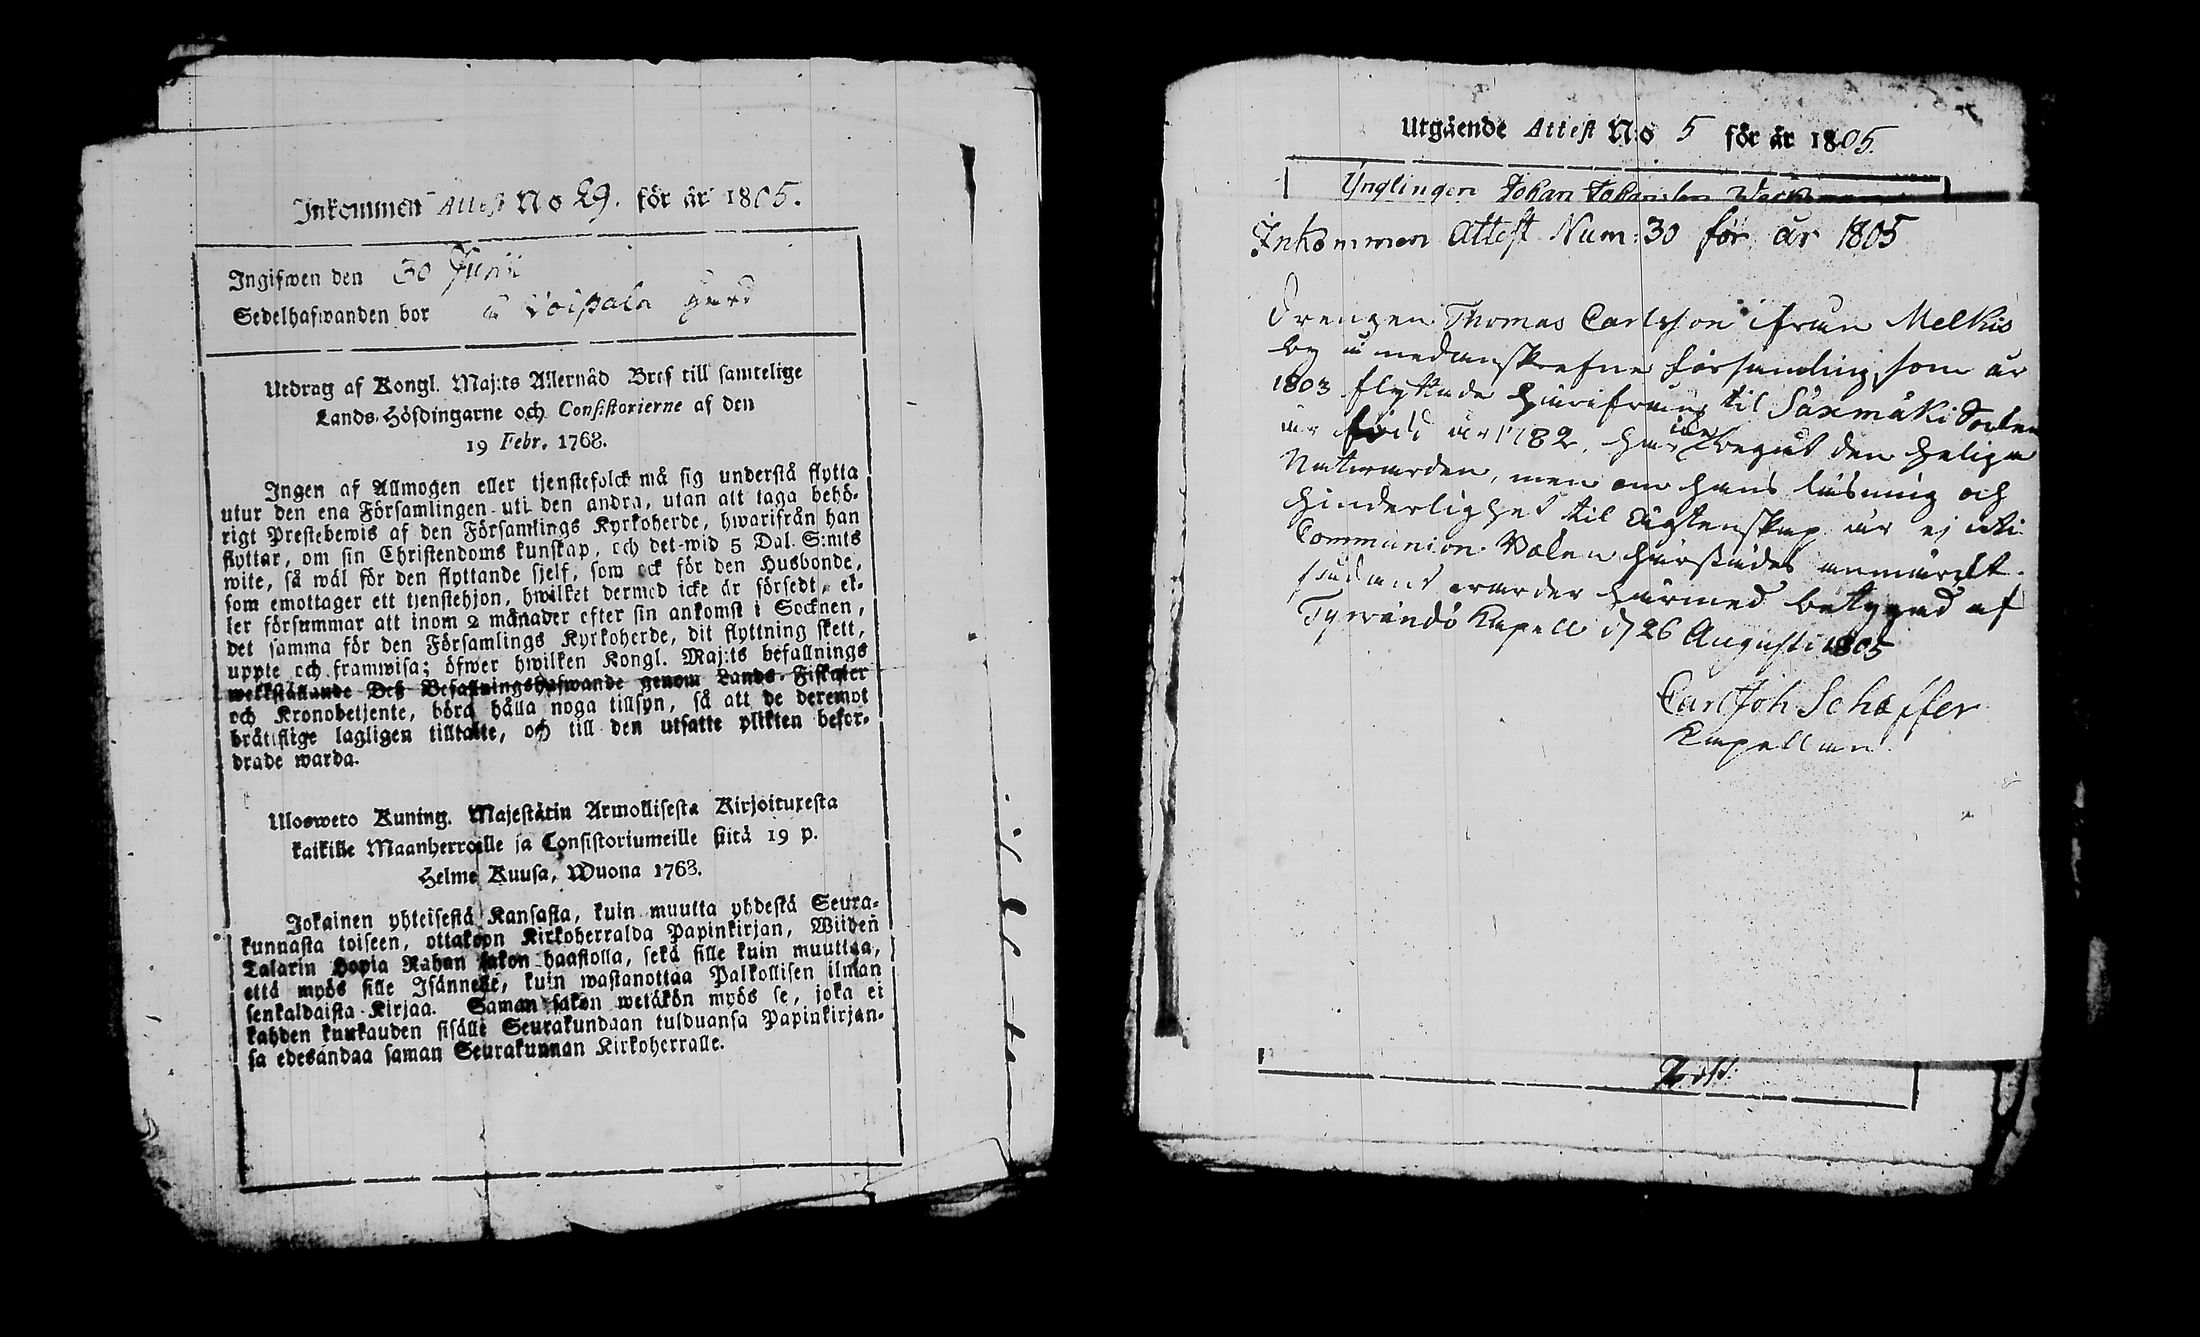 Inkommen Attest No 29. för år 1805.
Ingifwen den 30 Junii
Sedelhafwanden bor å Voipala gård
Utdrag af Kongl. Maj:ts Allernåd Bref till samtelige
Lands-Höfdingarne och Consistorierne af den
19 Febr. 1768.
Ingen af Allmogen eller tjenstefolck må sig understå flytta
utur den ena Församlingen uti den andra, utan att taga behö-
rigt Prestebewis af den Församlings Kyrkoherde, hwarifrån han
flyttar, om sin Christendoms kunskap, och det wid 5 Dal. S:mts
wite, så wäl för den flyttande sjelf, som ock för den Husbonde,
som emottager ett tjenstehjon, hwilket dermed icke är försedt, el-
ler försummar att inom 2 månader efter sin ankomst i Socknen,
det samma för den Församlings Kyrkoherde, dit flyttning skett,
uppte och framwisa; öfwer hwilken Kongl. Maj:ts befallnings
werkställande Deß Befallningshafwande genom Lands-Fiskaler
och Kronobetjente, böra hålla noga tillsyn, så att de deremot
brättslige lagligen tilltalte, och till den utsatte plikten befor-
drade warda.
Ulosweto Kuning. Majestätin Armollisesta Kirjoituxesta
kaikille Maanherroille ja Consistoriumeille siitä 19 p.
Helme Kuusa, Wuona 1768.
Jokainen yhteisestä Kansasta, kuin muutta yhdestä Seura-
kunnasta toiseen, ottakoon Kirkoherralda Papinkirjan, Wiiden
Talarin Hopia Rahan sakon haastolla, sekä sille kuin muuttaa,
että myös sille Isännelle, kuin wastanottaa Palkollisen ilman
senkaldaista Kirjaa. Saman sakon wetäkön myös se, joka ei
kahden kuukauden sisälle Seurakundaan tulduansa Papinkirjan-
sa edesandaa saman Seurakunnan Kirkoherralle.
Utgående Attest No 5 för år 1805.
Ynglingen Johan Johansson
Inkommen Attest Num: 30 för år 1805
Drengen Thomas Carlsson ifrån Melkis
by i nedanskrefne församling, som år
1803 flyttade härifrån til Säxmäki Socken
är född år 1782, har begåt den heliga
Nattwarden, men om hans läsning och
hinderlighet til Ägtenskap är ej uti
Communion Boken härstädes anmärckt.
sådant warder härmed betygad af
Tyrwändö Kapell d 26 Augusti 1805
Carl Joh Schæffer
Kapellan